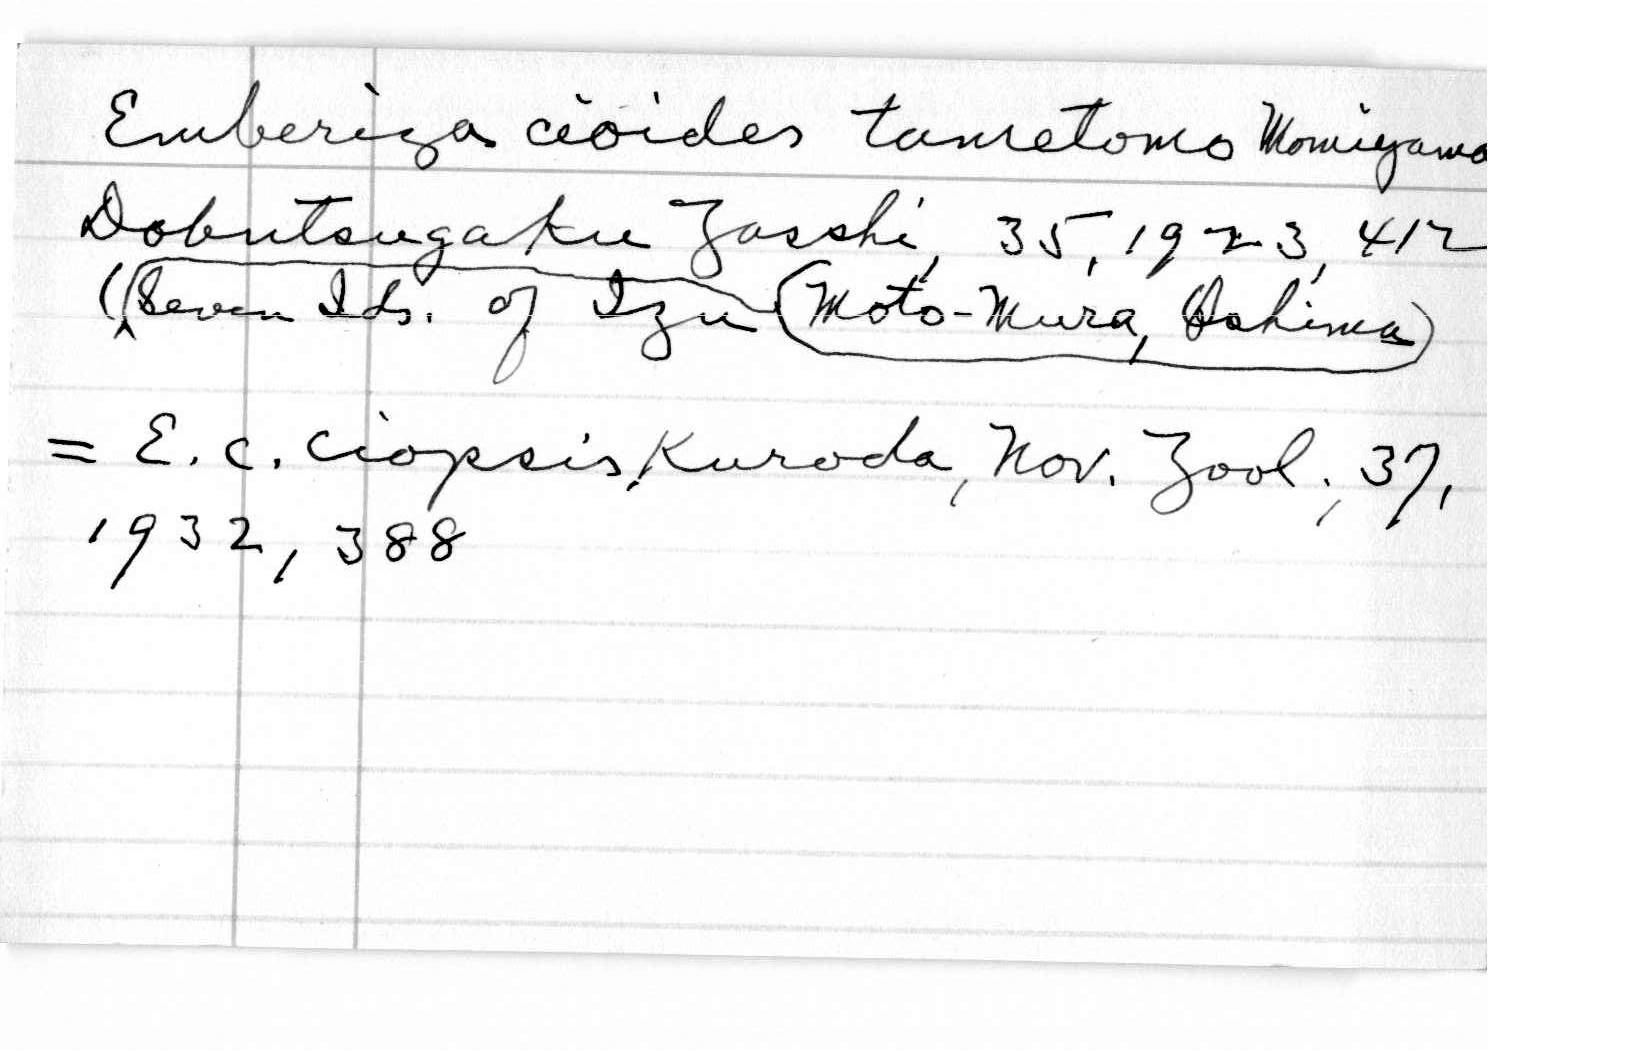 Emberiza cioides tametomo Momiyama
Dobutsugaku Zasshi, 35, 1923, 412
(Seven Ids. of Izu (Moto-Mura, Oshima)
= E. c. ciopsis, Kuroda, Nov. Zool., 37,
1932, 388